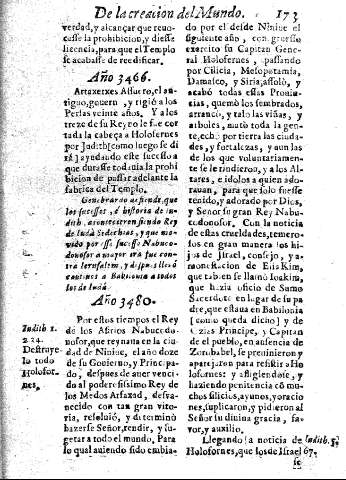 De la creacion del Mundo. 173
verdad, y alcançar que reuo-
casse la prohibicion, y diesse
licencia, para que el Templo
se acabasse de reedificar.
Año 3466.
Artaxerxes Assuero, el an-
tiguo, gouernò, y rigiò a los
Persas veinte años. Y a los
treze de su Reyno le fue cor-
tada la cabeça a Holofernes
por Judith (como luego se di
rà) ayudando este sucesso a
que durasse todauia la prohi
bicion de passar adelante la
fabrica del Templo.
Genebrardo defiende, que
los sucessos, è historia de Iu-
dith, acontecieron siendo Rey
de Iudà Sedechias, y que mo-
uido por esse sucesso Nabuco-
donosor a mayor ira fue con-
tra Ierusalem, y despues lleuò
cautiuos a Babilonia a todos
los de Iudà.
Año 3480.
Iudith 1.
2. 24.
Destruye
lo todo
Holofer-
nes,
Por estos tiempos el Rey
de los Asirios Nabucodo-
nosor, que reynaua en la ciu-
dad de Niniue, el año doze
de su Gouierno, y Principa-
do, despues de auer venci-
do al poderosissimo Rey de
los Medos Arfaxad, desva-
necido con tan gran vito-
ria, resoluiò, y determinò
hazerse Señor, rendir, y su-
getar a todo el Mundo. Para
lo qual auiendo sido embia-
do por el desde Niniue el
siguiente año, con gruesso
exercito su Capitan Gene-
ral Holofernes, passando
por Cilicia, Mesopotamia,
Damasco, y Siria, assolò, y
acabò todas essas Prouin-
cias, quemò los sembrados,
arrancò, y talò las viñas, y
arboles, matò toda la gen-
te, echò por tierra las ciuda-
des, y fortalezas, y aun las
de los que voluntariamen-
te se le rindieron, y a los Al-
tares, e idolos a quien ado-
rauan, para que solo fuesse
tenido, y adorado por Dios,
y Señor su gran Rey Nabu-
codonosor. Con la noticia
de estas crueldades, temero-
sos en gran manera los hi-
jos de Israel, consejo, y a-
monestacion de Eliakim,
que tambien se llamò Ioakim,
que hazia oficio de Sumo
Sacerdote en lugar de su pa
dre, que estaua en Babilonia
(como queda dicho) y de
Ozias Principe, y Capitan
del pueblo, en ausencia de
Zorobabel, se preuinieron y
aparejaron para resistir a Ho
lofernes: y afligiendose, y
haziendo penitencia cõ mu-
chos silicios, ayunos, y oracio
nes, suplicaron, y pidieron al
Señor su diuina gracia, fa-
vor, y auxilio.
Llegando la noticia de
Holofernes, que los de Israel
Iudith. 5.
67.
se